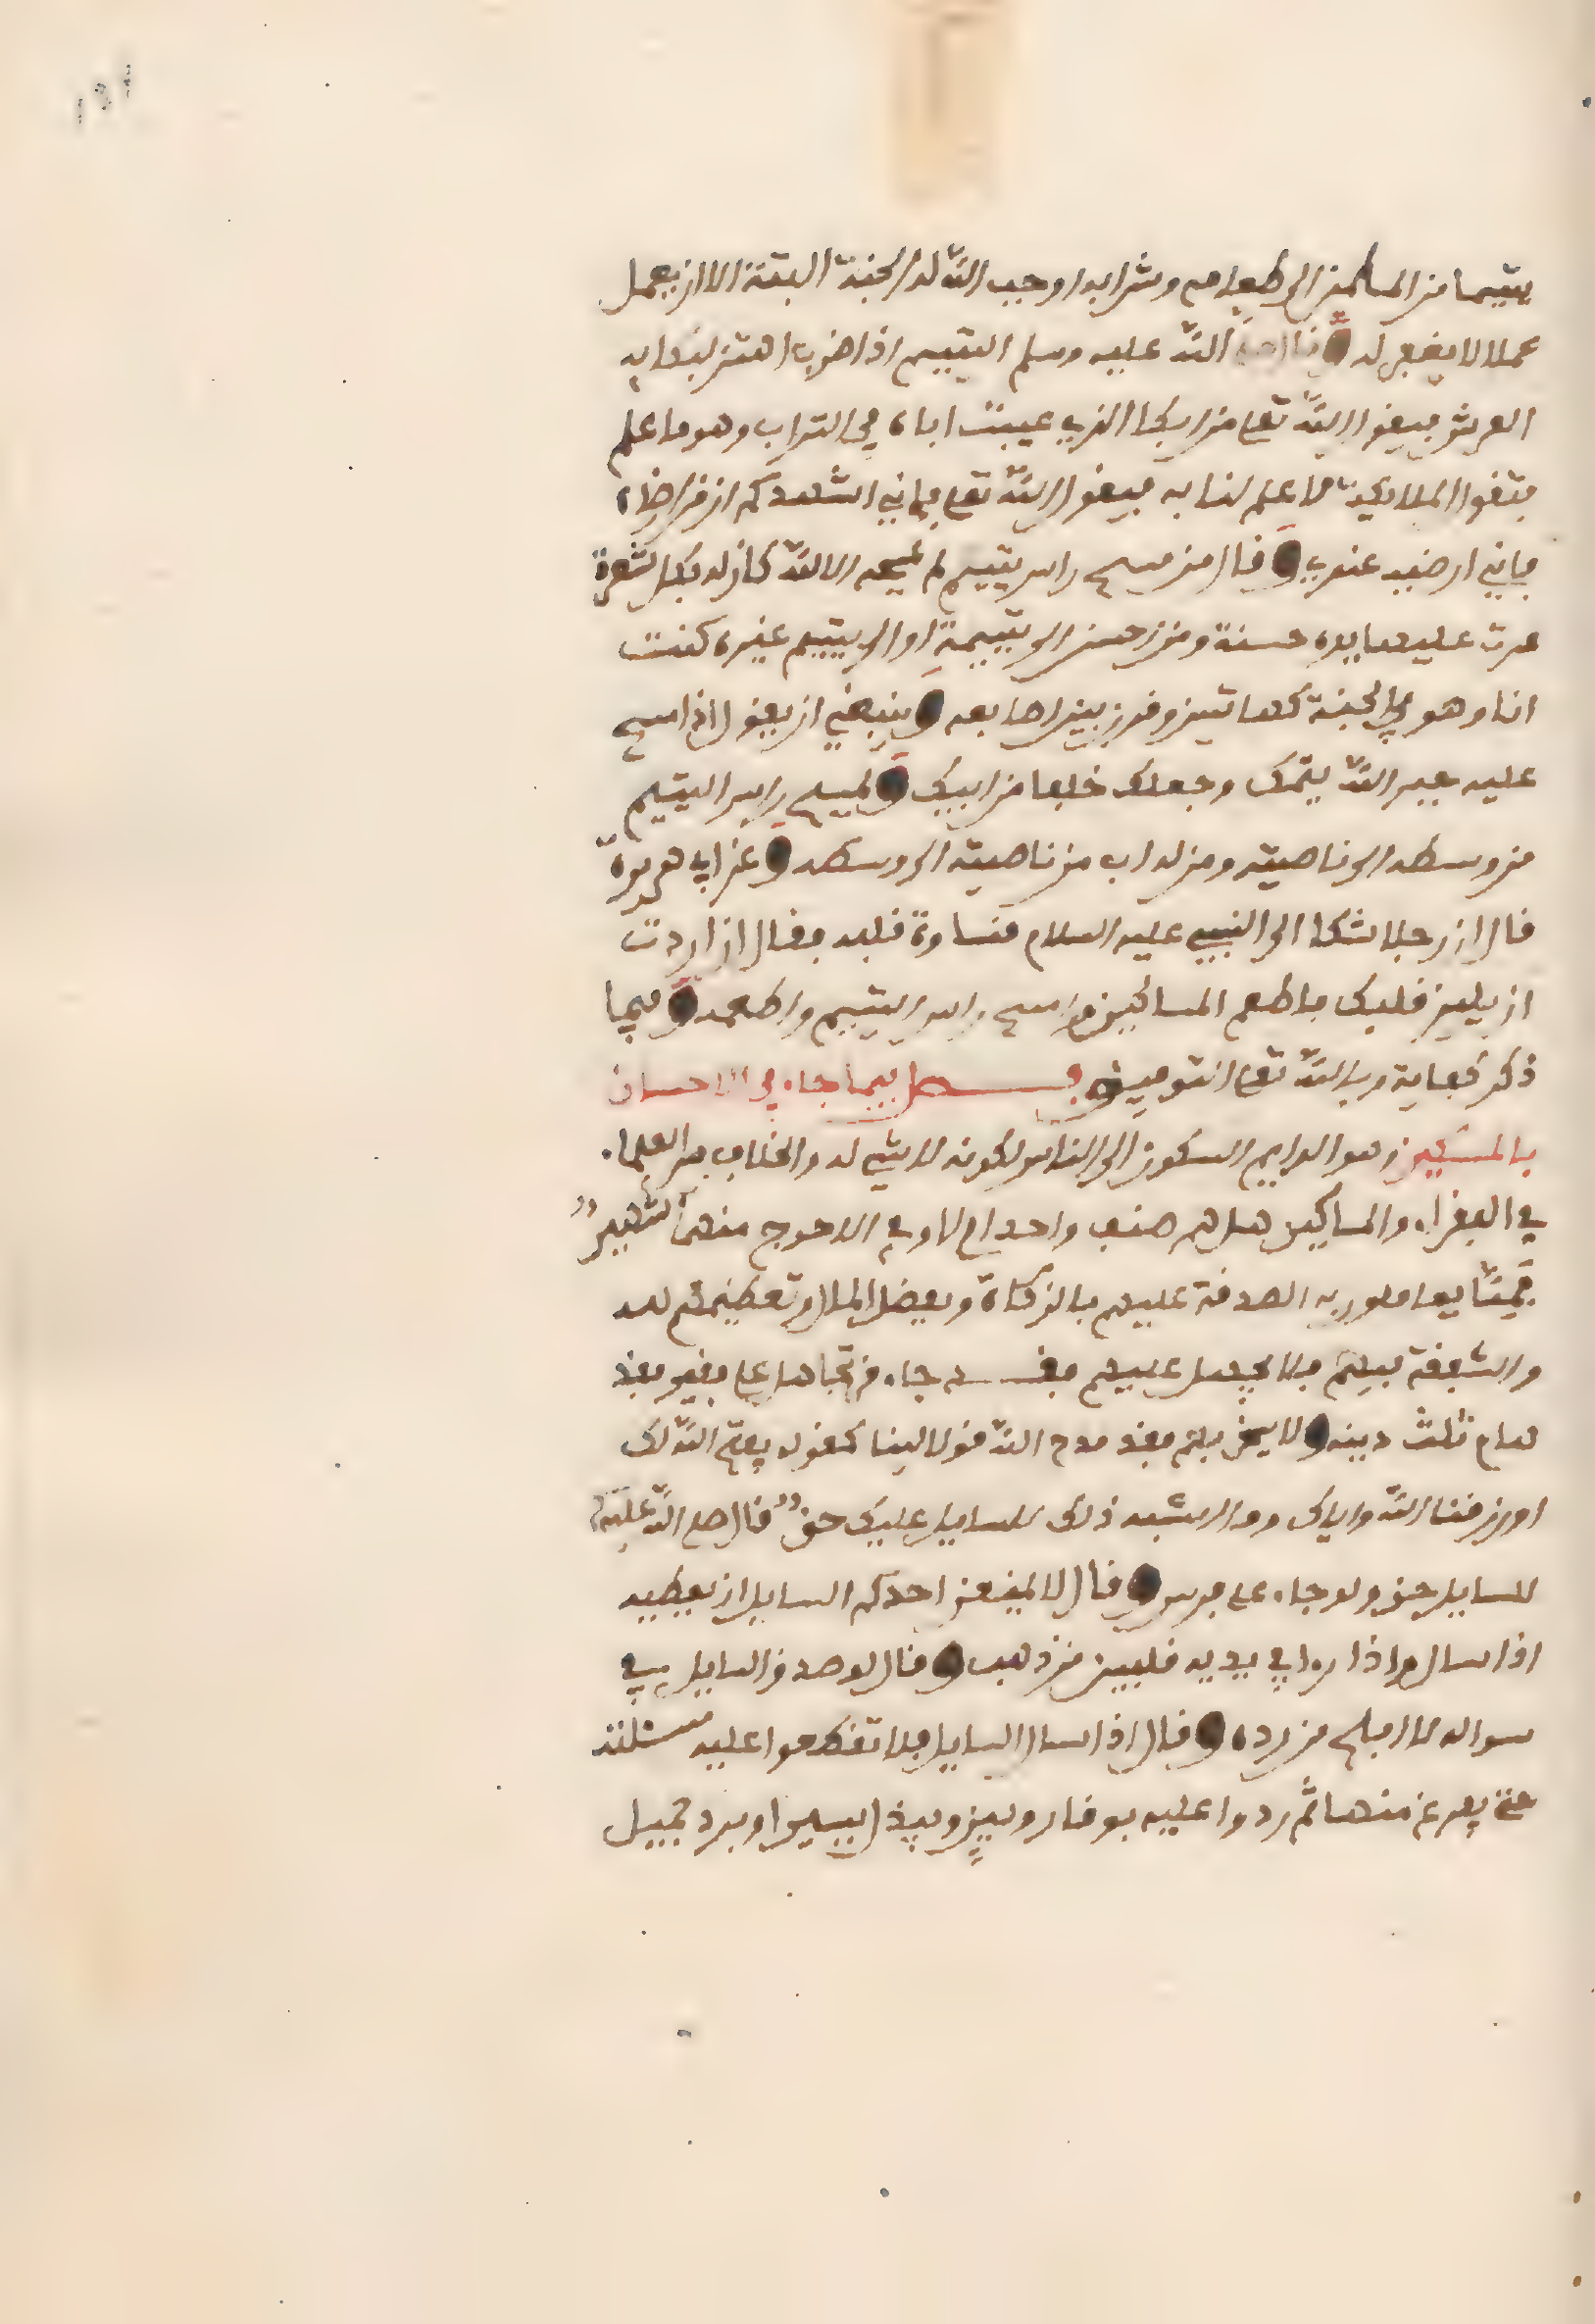 ١٤١
يتيما من المسلمين الى طعامه وشرابه اوجب الله له الجنة البتة الا ان يعمل
عملا لا يغفر له وقال صلى الله عليه وسلم اليتيم اذا ضرب اهتز لبكايه
العرش فيقول الله تعلى من ابكا الذي غيبت اباه في التراب وهو اعلم
فتقول الملايكة لا علم لنا به فيقول الله تعلى فاني اشهدكم ان من ارضاه
فاني ارضيه عندي وقال من مسح راس يتيم لم يمسحه الا لله كان له بكل شعرة
مرت عليها يده حسنة ومن احسن الى يتيمة او الى يتيم غيره كنت
انا وهو في الجنة كهاتين وقرن بين اصابعه وينبغي ان يقول اذا مسح
عليه جبر الله يتمك وجعلك خلفا من ابيك وليمسح راس اليتيم
من وسطه الى ناصيته ومن له اب من ناصيته الى وسطه وعن ابي هريرة
قال ان رجلا شكا الى النبي عليه السلام قساوة قلبه فقال ان اردت
ان يلين قلبك فاطعم المساكين وامسح راس اليتيم واطعمه وفيما
ذكر كفاية وبالله تعلى التوفيق فصل فيما جاء في الاحسان
بالمسكين وهو الدايم السكون الى الناس لكونه لا شيء له والخلاف بين العلماء
في الفقراء والمساكين هل هم صنف واحد ام لا وفي الاحوج منهما شهير
والشفقة عليهم فلا يجهل عليهم فقد جاء من تجاهل على فقير فقد
هدم ثلث دينه ولا يحزنهم فقد مدح الله قولا لينا كقوله يفتح الله لك
او رزقنا الله واياك وما اشبه ذلك للسايل عليك حق قال صلى الله عليه
للسايل حق ولو جاء على فرس وقال لا يمنعن احدكم السايل ان يعطيه
اذا سال واذا راى في يديه قلبين من ذهب وقال لو صدق السايل في
سواله لا افلح من رده وقال اذا سال السايل فلا تقطعوا عليه مسئلته
حتى يفرغ منها ثم ردوا عليه بوقار ولين وببذل يسير او برد جميل